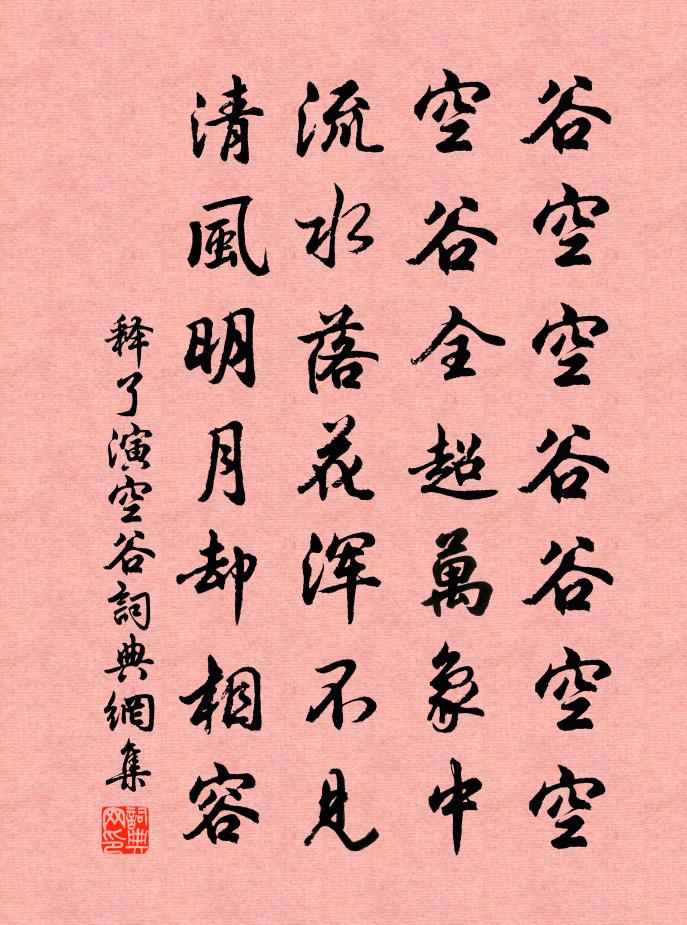 谷空空谷谷空空
空谷全超萬象中
流水落花浑不見
清風明月却相容
释了演空谷詞典網集
詞典网印